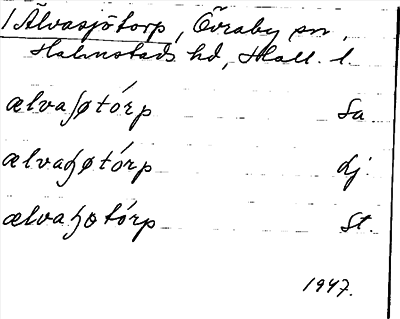 1 Älvasjötorp, Övraby sn,
Halmstads hd, Hall. l.
ælvaʃøtórp Sa
ælvaɧøtórp dj.
ælvaɧotórp St.
1947.